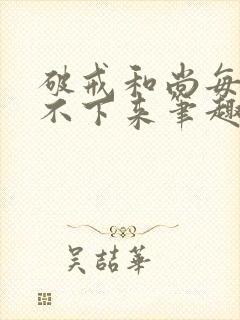 破戒和尚每
不下来笔趣
吴喆华